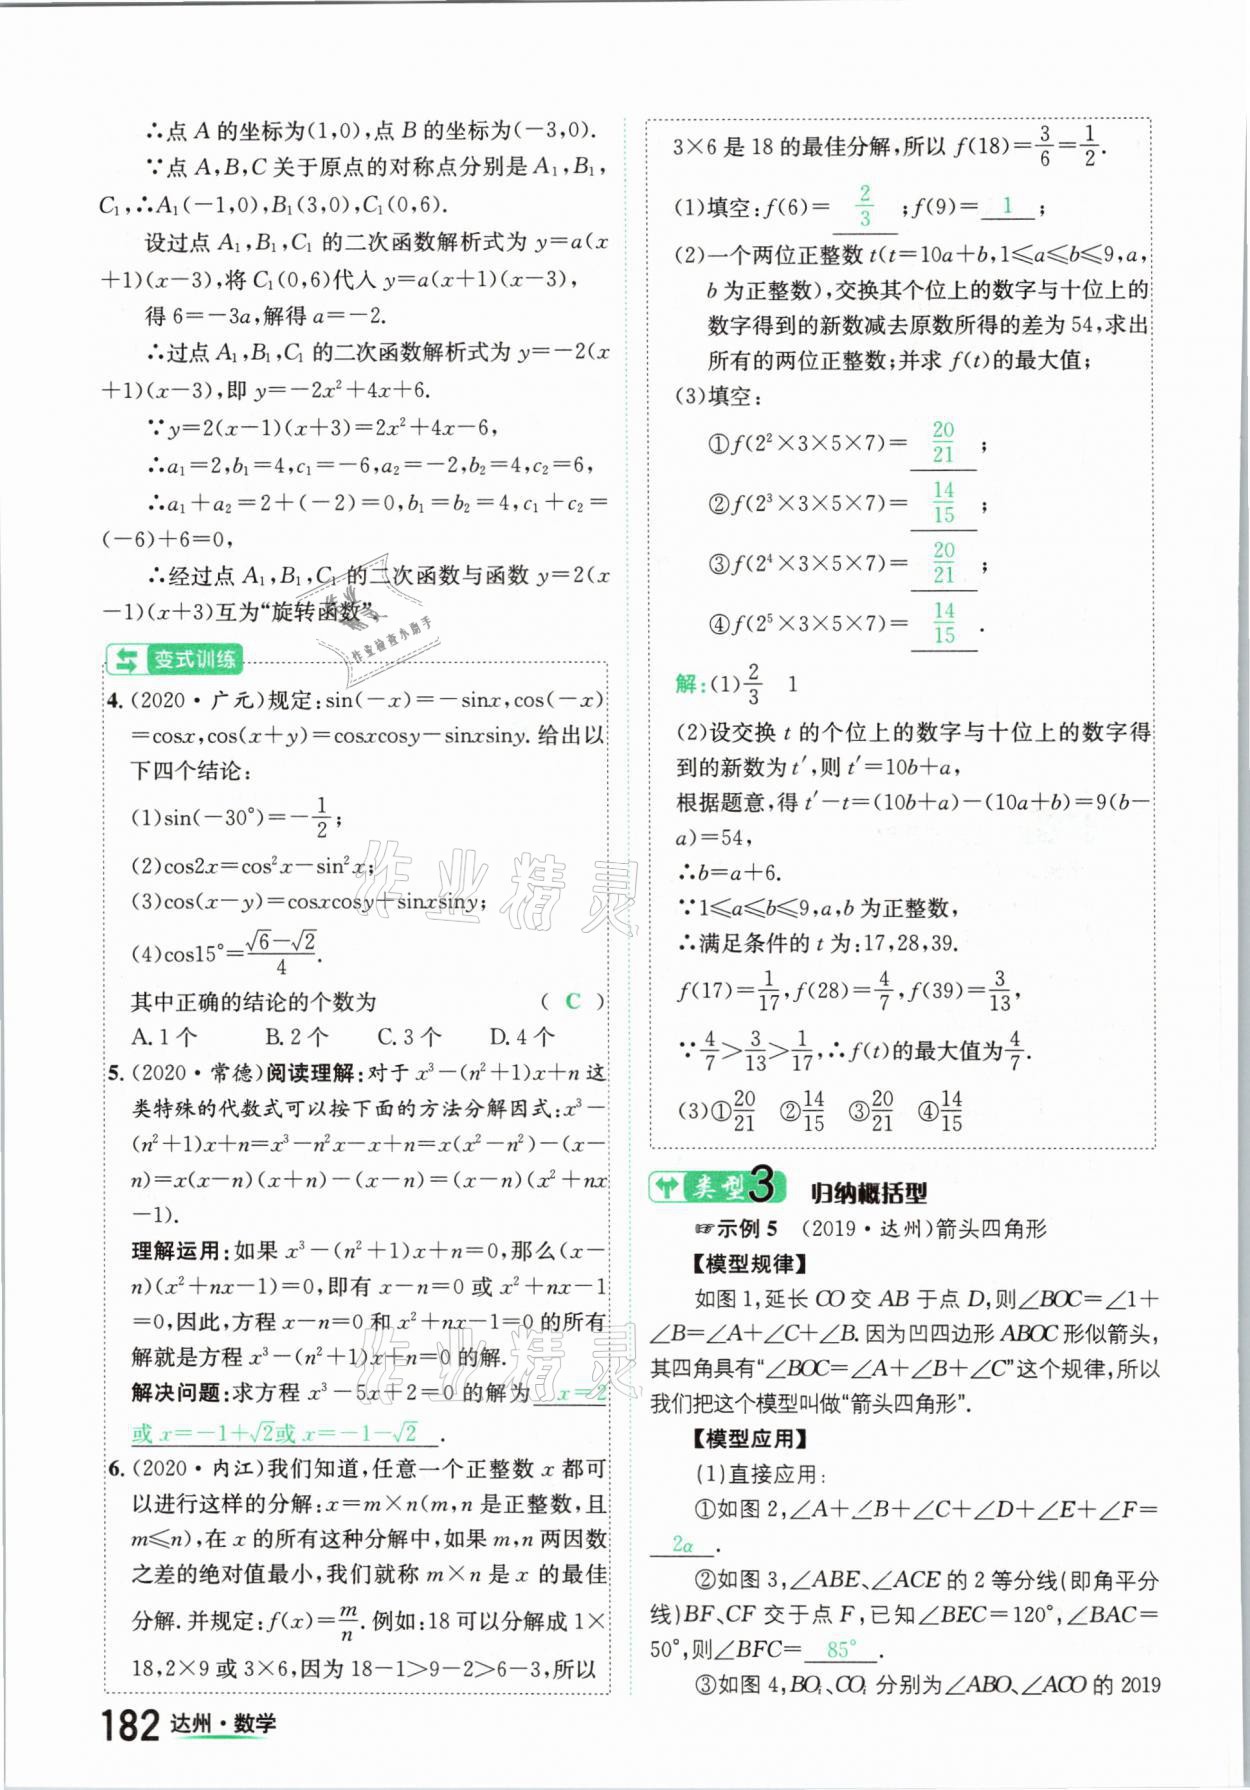 ∴点 A 的坐标为(1,0),点 B 的坐标为(-3,0).
∵点 A,B,C 关于原点的对称点分别是 A₁,B₁,
C₁,∴A₁(-1,0),B₁(3,0),C₁(0,6).
设过点 A₁,B₁,C₁ 的二次函数解析式为 y=a(x
+1)(x-3),将 C₁(0,6)代入 y=a(x+1)(x-3),
得 6=-3a,解得 a=-2.
∴过点 A₁,B₁,C₁ 的二次函数解析式为 y=-2(x
+1)(x-3),即 y=-2x²+4x+6.
∵y=2(x-1)(x+3)=2x²+4x-6,
∴a₁=2,b₁=4,c₁=-6,a₂=-2,b₂=4,c₂=6,
∴a₁+a₂=2+(-2)=0,b₁=b₂=4,c₁+c₂=
(-6)+6=0,
∴经过点 A₁,B₁,C₁ 的二次函数与函数 y=2(x
-1)(x+3)互为“旋转函数”.
变式训练
4.(2020·广元)规定:sin(-x)=-sinx,cos(-x)
=cosx,cos(x+y)=cosxcosy-sinxsiny.给出以
下四个结论:
(1)sin(-30°)=-1/2;
(2)cos2x=cos²x-sin²x;
(3)cos(x-y)=cosxcosy+sinxsiny;
(4)cos15°=(√6-√2)/4.
其中正确的结论的个数为 ( C )
A.1个 B.2个 C.3个 D.4个
5.(2020·常德)阅读理解:对于 x³-(n²+1)x+n 这
类特殊的代数式可以按下面的方法分解因式:x³-
(n²+1)x+n=x³-n²x-x+n=x(x²-n²)-(x-
n)=x(x-n)(x+n)-(x-n)=(x-n)(x²+nx
-1).
理解运用:如果 x³-(n²+1)x+n=0,那么(x-
n)(x²+nx-1)=0,即有 x-n=0 或 x²+nx-1
=0,因此,方程 x-n=0 和 x²+nx-1=0 的所有
解就是方程 x³-(n²+1)x+n=0 的解.
解决问题:求方程 x³-5x+2=0 的解为 x=2
或 x=-1+√2或 x=-1-√2 .
6.(2020·内江)我们知道,任意一个正整数 x 都可
以进行这样的分解:x=m×n(m,n 是正整数,且
m≤n),在 x 的所有这种分解中,如果 m,n 两因数
之差的绝对值最小,我们就称 m×n 是 x 的最佳
分解.并规定:f(x)=m/n.例如:18 可以分解成 1×
18,2×9 或 3×6,因为 18-1>9-2>6-3,所以
182 达州·数学
3×6 是 18 的最佳分解,所以 f(18)=3/6=1/2.
(1)填空:f(6)= 2/3 ;f(9)= 1 ;
(2)一个两位正整数 t(t=10a+b,1≤a≤b≤9,a,
b 为正整数),交换其个位上的数字与十位上的
数字得到的新数减去原数所得的差为 54,求出
所有的两位正整数;并求 f(t)的最大值;
(3)填空:
①f(2²×3×5×7)= 20/21 ;
②f(2³×3×5×7)= 14/15 ;
③f(2⁴×3×5×7)= 20/21 ;
④f(2⁵×3×5×7)= 14/15 .
解:(1)2/3 1
(2)设交换 t 的个位上的数字与十位上的数字得
到的新数为 t′,则 t′=10b+a,
根据题意,得 t′-t=(10b+a)-(10a+b)=9(b-
a)=54,
∴b=a+6.
∵1≤a≤b≤9,a,b 为正整数,
∴满足条件的 t 为:17,28,39.
f(17)=1/17,f(28)=4/7,f(39)=3/13,
∵4/7>3/13>1/17,∴f(t)的最大值为4/7.
(3)①20/21 ②14/15 ③20/21 ④14/15
类型3 归纳概括型
☞示例5 (2019·达州)箭头四角形
【模型规律】
如图 1,延长 CO 交 AB 于点 D,则∠BOC=∠1+
∠B=∠A+∠C+∠B.因为凹四边形 ABOC 形似箭头,
其四角具有“∠BOC=∠A+∠B+∠C”这个规律,所以
我们把这个模型叫做“箭头四角形”.
【模型应用】
(1)直接应用:
①如图 2,∠A+∠B+∠C+∠D+∠E+∠F=
2α .
②如图 3,∠ABE、∠ACE 的 2 等分线(即角平分
线)BF、CF 交于点 F,已知∠BEC=120°,∠BAC=
50°,则∠BFC= 85° .
③如图 4,BOᵢ、COᵢ 分别为∠ABO、∠ACO 的 2019
作业检查小助手
作业精灵
作业精灵